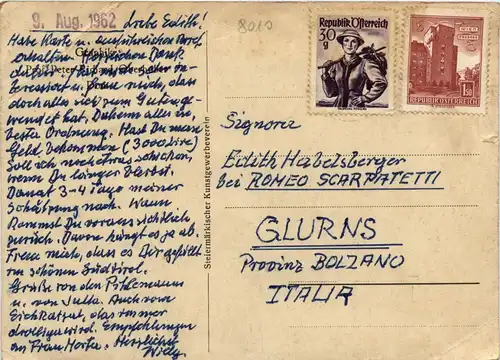 9. Aug. 1962
Liebe Edith!
Habe Karte u. ausführlichen Brief
erhalten. Herzlichen Dank
doch alles sich zum Guten ge-
wendet hat. Daheim alles in
bester Ordnung. Hast Du mein
Geld bekommen (3000 Lire)
Soll ich noch etwas schicken,
wenn Du länger bleibst.
Dauat 3-4 Tage meiner
Schätzung nach. Wann
kommst Du voraussichtlich
zurück. Davon hängt es ja ab.
Freu mich, dass es Dir gefällt
im schönen Südtirol.
Grüße von den
u. von Jutta. Auch vom
das immer
drolliger wird. Empfehlungen
an Frau Herta. Herzlichst
Willy
Steiermärkischer Kunstgewerbeverein
8010
Republik Österreich
30
g
1.50
REPUBLIK ÖSTERREICH
Signora
Edith Habelsberger
bei ROMEO SCARPATETTI
GLURNS
Provinz BOLZANO
ITALIA